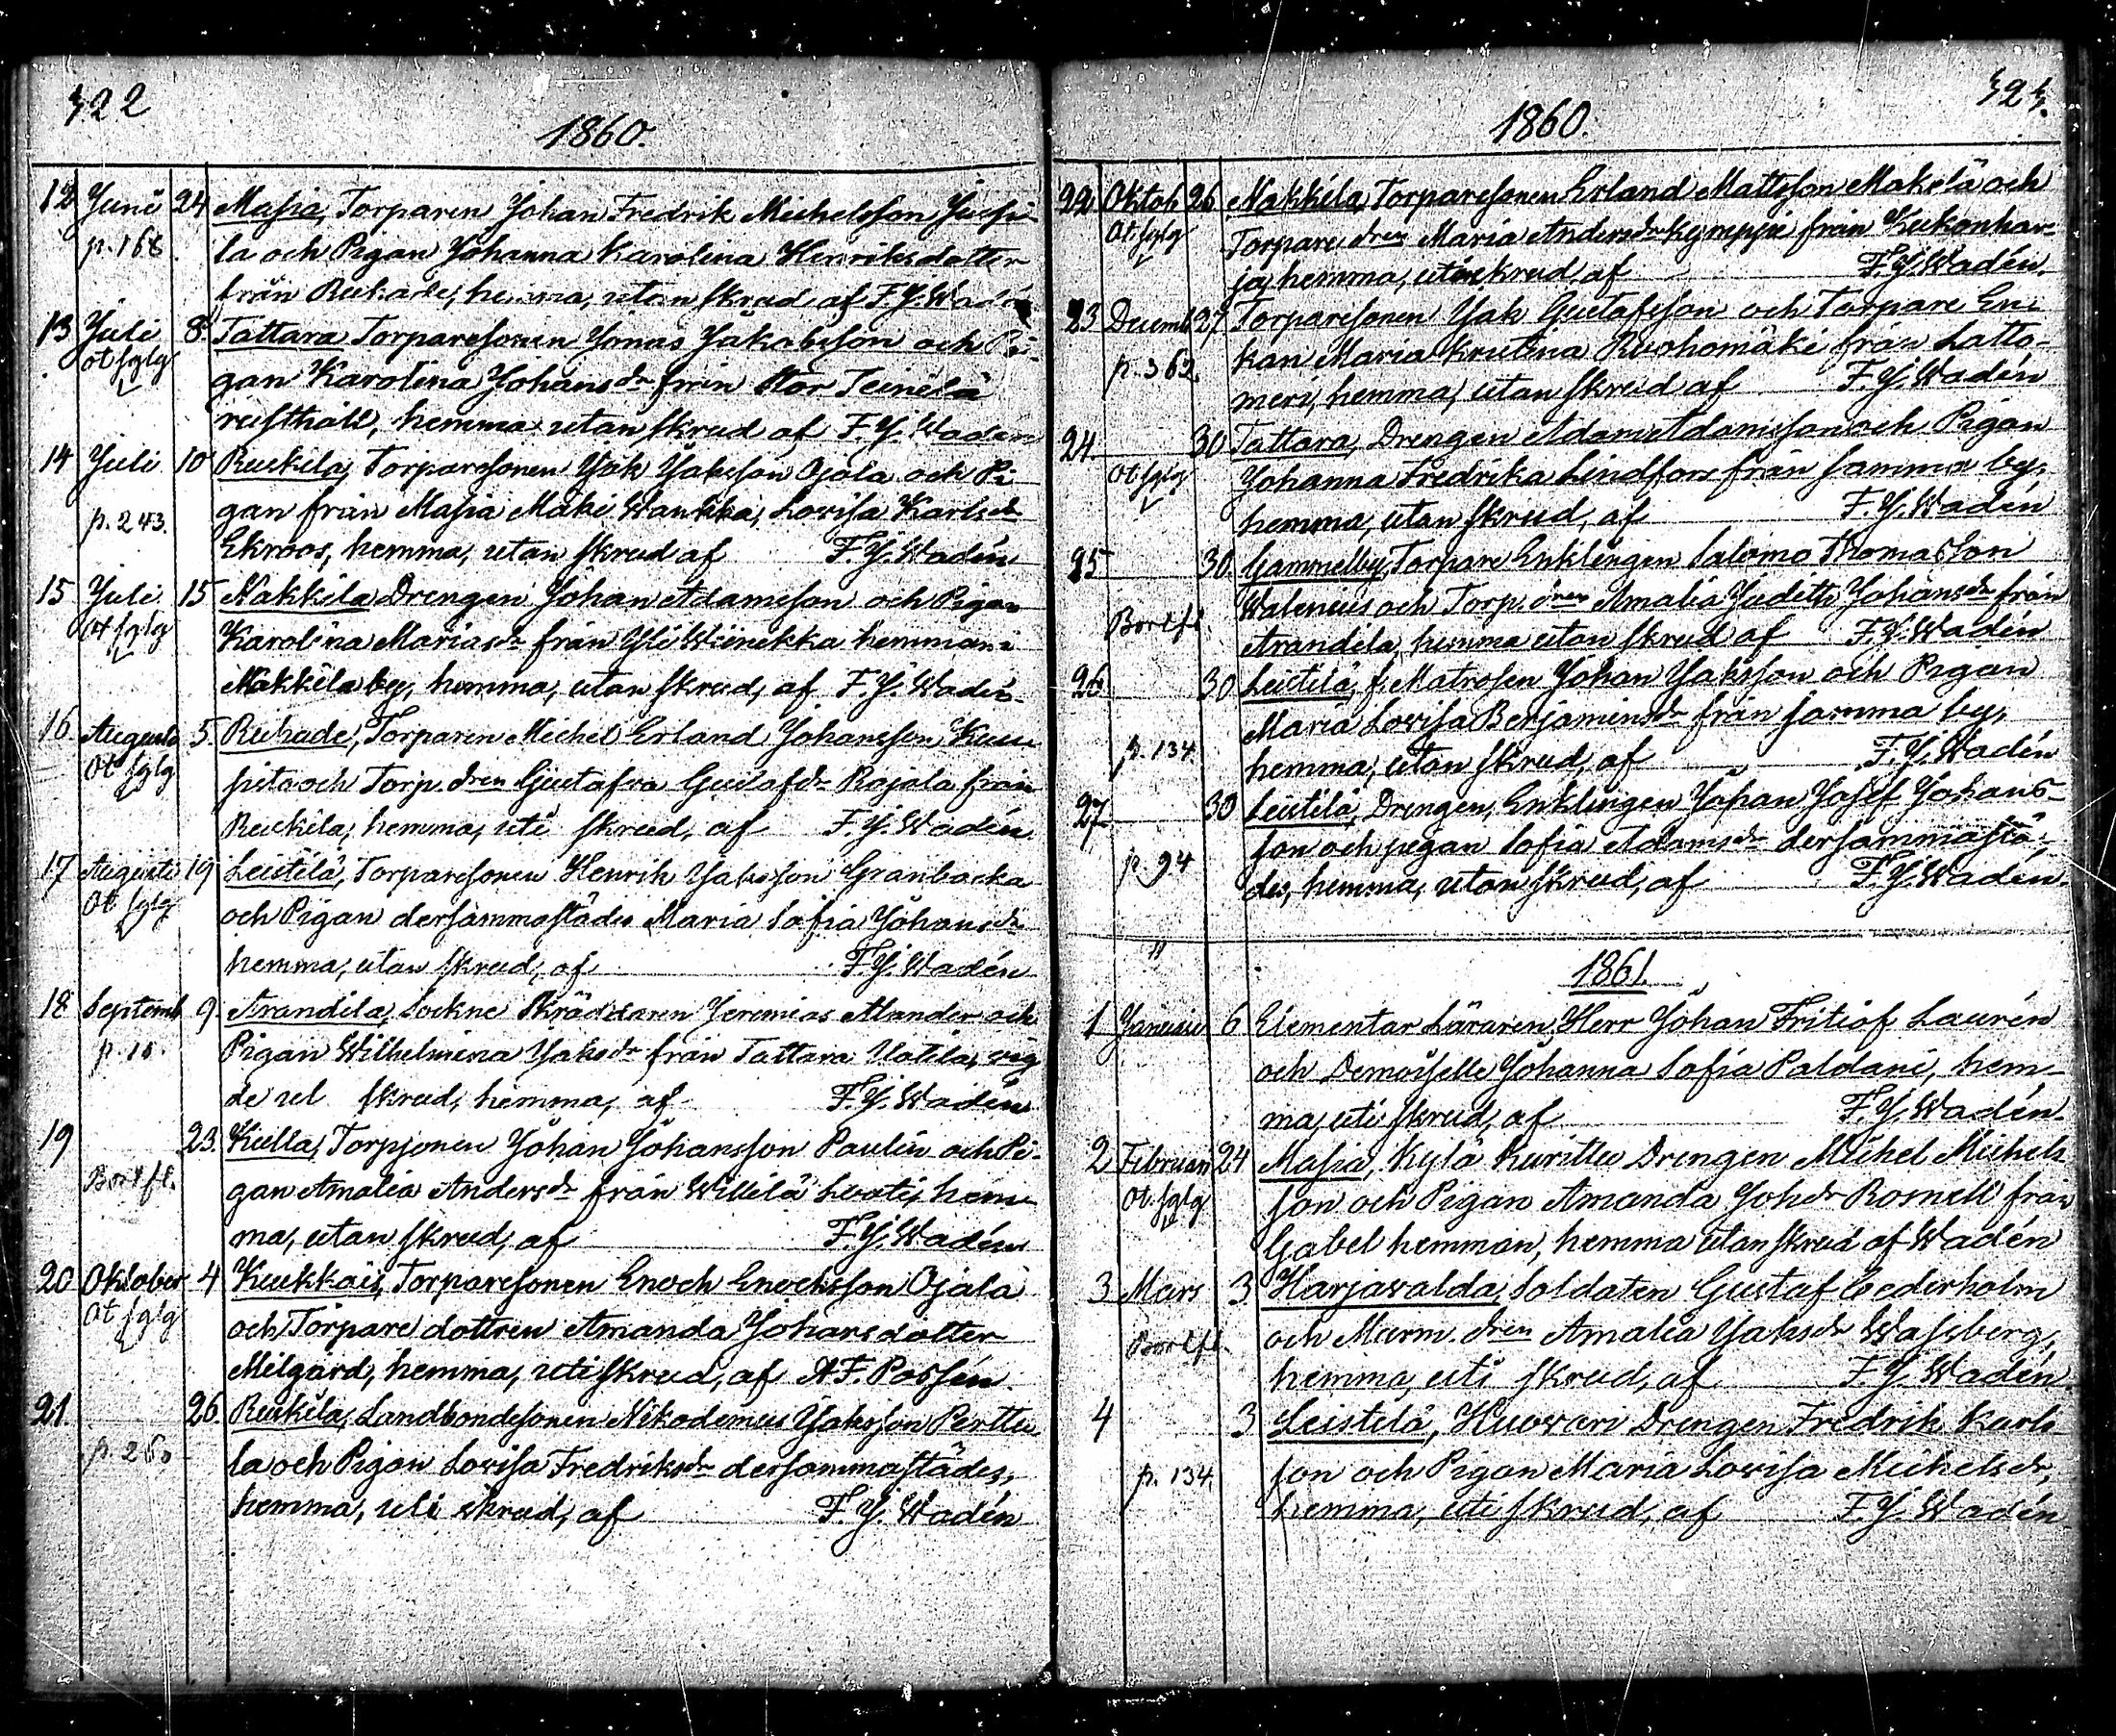 322
1860.
12 Juni 24 Masia, Torparen Johan Fredrik Michelsson Jussi-
p. 166. la och Pigan Johanna Karolina Henriksdotter
från Ruhade, hemma, utan skrud af F. J. Wadén
13 Juli 8. Tattara Torparesonen Jonas Jakobsson och Pi-
ot sglg gan Karolina Johans dr från Stor Teinilä
rusthåll, hemma utan skrud af F. J. Wadén
14 Juli 10 Ruskila, Torparesonen Jak Jaksson Ojala och Pi
p. 243. gan från Masia Mäki Wankka, Lovisa Karls dr
Ekroos, hemma, utan skrud af F. J. Wadén
15 Juli 15 Nakkila Drengen Johan Adamsson och Pigan
ot sglg Karolina Marias dr från Yli Wiinikka hemman i
Nakkila by, hemma, utan skrud, af F. J. Wadén
16. Augusti 5. Ruhade, Torparen Michel Erland Johansson Kuu
ot sglg sisto och Torp. dren Gustafva Gustafs dr Rajala från
Ruskila, hemma, uti skrud, af F. J. Wadén
17 Augusti 19 Leistilä, Torparesonen Henrik Jaksson Granbacka
ot sglg och Pigan dersammastädes Maria Sofia Johans dr
hemma, utan skrud, af F. J. Wadén
18 Septemb 9. Arandila, Sockne Skräddaren Jeremias Alander och
p. 10. Pigan Wilhelmina Jaks dr från Tattara Uotila, vig
de uti skrud, hemma, af F. J. Wadén
19 23. Kulla, Torpsonen Johan Johansson Paulin och Pi-
Bortfl. gan Amalia Anders dr från Willilä Luoti, hem
ma, utan skrud, af F. J. Wadén
20 Oktober 4 Kukkois, Torparesonen Enoch Enochsson Ojala
ot sglg och Torpare dottren Amanda Johansdotter
Milgard, hemma, uti skrud, af A. F. Possén
21 26. Ruskila, Landbondesonen Nikodemus Jaksson Perttu
p. 260 la och Pigan Lovisa Fredriks dr dersammastädes,
hemma, uti skrud, af F. J. Wadén
323.
1860.
22 Oktob 26 Nakkila, Torparesonen Erland Mattsson Mäkelä och
ot sglg Torpare dren Maria Anders dr Kymppi från Kukonhar-
ja, hemma, uti skrud, af F. J. Wadén
23 Decemb 27 Torparesonen Jak Gustafsson och Torpare En-
p. 362. kan Maria Kristina Ruohomäki från Latto-
meri, hemma, utan skrud af F. J. Wadén
24. 30 Tattara, Drengen Adam Adamsson och Pigan
ot sglg Johanna Fredrika Lindfors från samma by,
hemma, utan skrud, af F. J. Wadén
25 30. Gammelby, Torpare Enklingen Salomo Thomasson
Bortfl. Walenius och Torp. dren Amalia Judith Johans dr från
Arandila, hemma utan skrud af F. J. Wadén
26 30 Leistilä, f. Matrosen Johan Jaksson och Pigan
Maria Lovisa Benjamins dr från samma by,
p. 134. hemma, utan skrud, af F. J. Wadén
27 30 Leistilä, Drengen, Enklingen Johan Josef Johans-
p. 94 son och pigan Sofia Adams dr dersammastä-
des, hemma, utan skrud, af F. J. Wadén.
1861.
1 Januari 6 Elementar Läraren, Herr Johan Fritiof Laurén
och Demoiselle Johanna Sofia Paldani, hem-
ma, uti skrud, af F. J. Wadén
2 Februari 24 Masia, Kylä Kurittu Drengen Michel Michels
ot sglg son och Pigan Amanda Joh dr Rosnell från
Gabel hemman, hemma utan skrud af Wadén
3 Mars 3. Harjavalda, Soldaten Gustaf Cederholm
Bortfl. och Murm. dren Amalia Jaks dr Wassberg,
hemma, uti skrud, af F. J. Wadén
4 3 Leistilä, Huovari Drengen Fredrik Karls
p. 134. son och Pigan Maria Lovisa Michels dr,
hemma, uti skrud, af F. J. Wadén